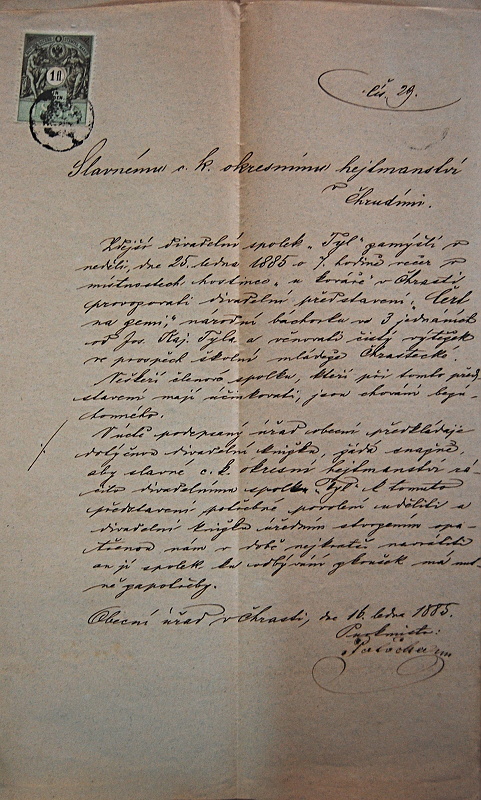 1 fl.
Čís. 29.
Slavnému c. k. okresnímu hejtmanství
v
Chrudimi.
Zdejší divadelní spolek „Tyl“ pamýšlí v
neděli, dne 25. ledna 1885 o 7. hodině večer v
místnostech hostince „u kováře“ v Chrasti
provozovati divadelní představení „Čert
na zemi,“ národní báchorka ve 3 jednáních
od Jos. Kaj. Tyla a věnovati čistý výtěžek
ve prospěch školní mládeže Chrastecké.
Veškeří členové spolku, kteří při tomto před
stavení mají účinkovati, jsou chování bezú-
honného.
V úctě podepsaný úřad obecní předkládaje
dotyčnou divadelní knížku, žádá snažně,
aby slavné c. k. okresní hejtmanství rá-
čilo divadelnímu spolku „Tyl“ k tomuto
představení potřebné povolení uděliti a
divadelní knížku úředním strogemu opa-
třenou nám v době nejkratší navrátiti
an jí spolek ku odbývání zkoušek má nut-
ně zapotřeby.
Obecní úřad v Chrasti, dne 16. ledna 1885.
Purkmistr: